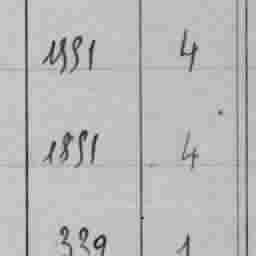 1991 4
1891 4
339 1